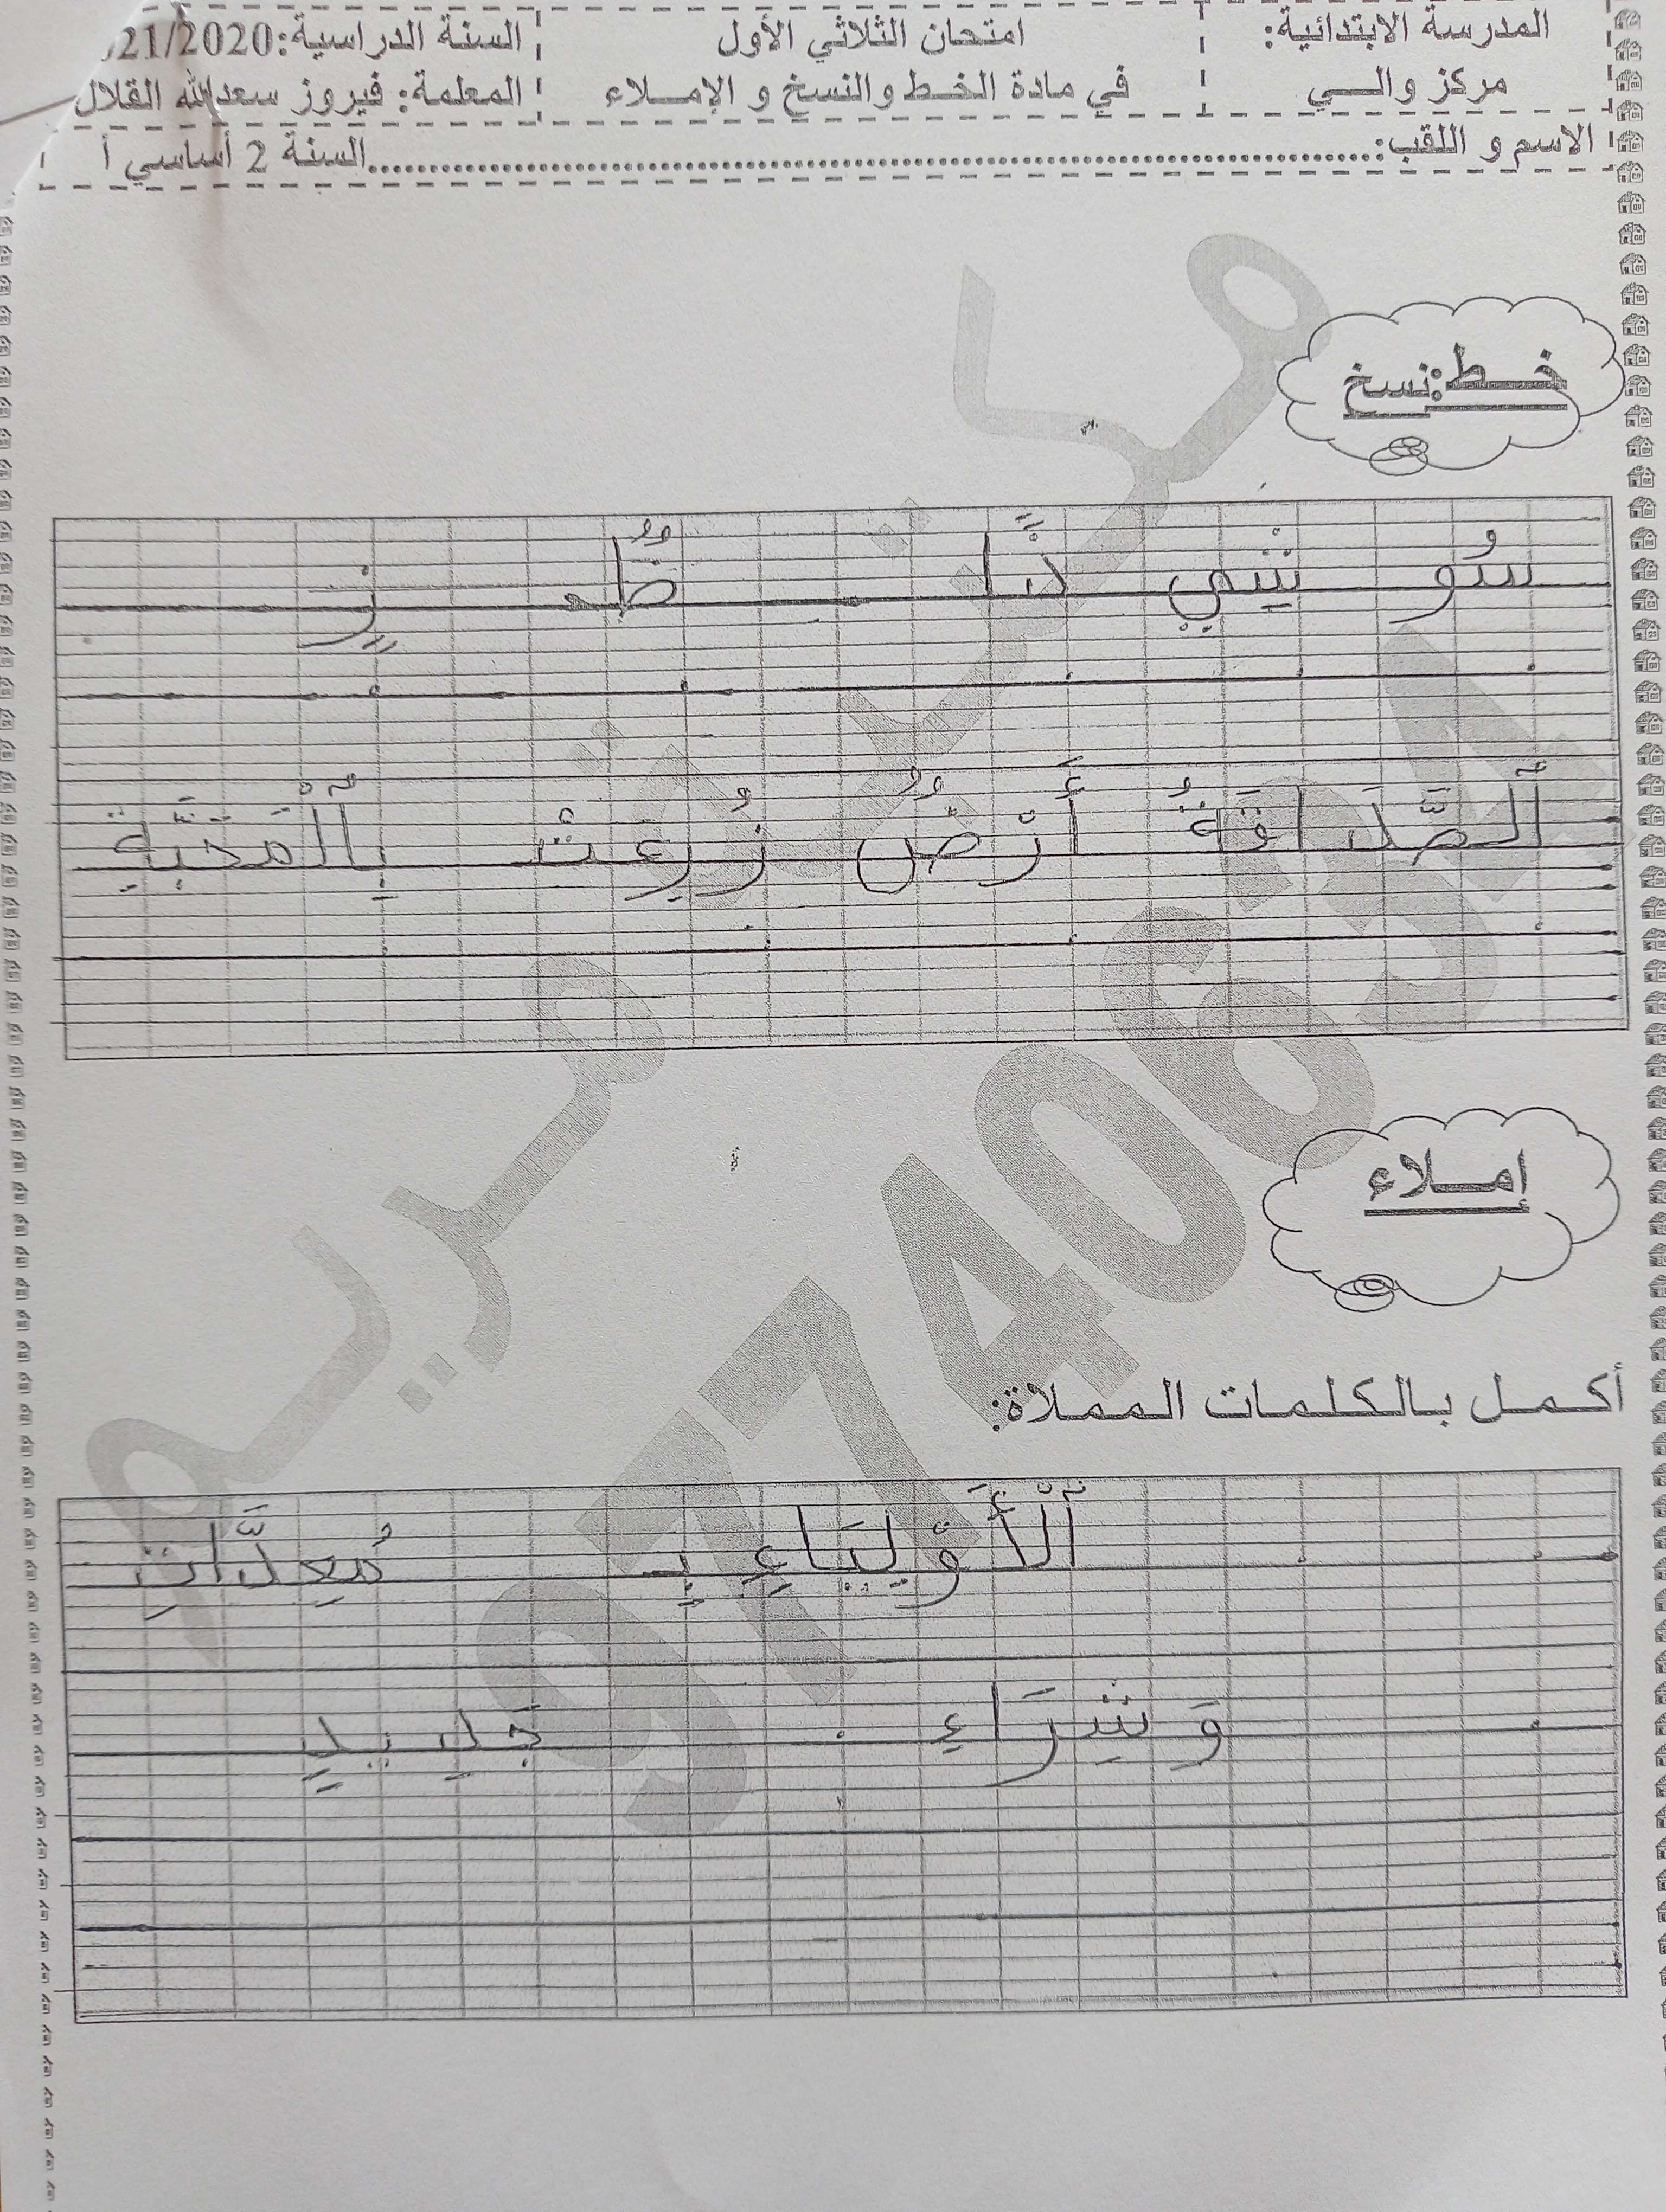 المدرسة الابتدائية: امتحان الثلاثي الأول السنة الدراسية:021/2020
مركز والـــي في مادة الخـط والنسخ و الإمـلاء المعلمة: فيروز سعدالله القلال
الاسم و اللقب:..........السنة 2 أساسي أ
خـط:نسخ
سُو شِي ظٌ زٍ
اَلصَّدَاقَةُ أَرْضٌ زُرِعَتْ بِالْمَحَبَّةِ
إمـلاء
أكمـل بالكلمات المملاة:
اَلْأَوْلِيَاءِ بِـ مُعِدَّاتِ
وَ شِرَاءِ جَدِيدٍ